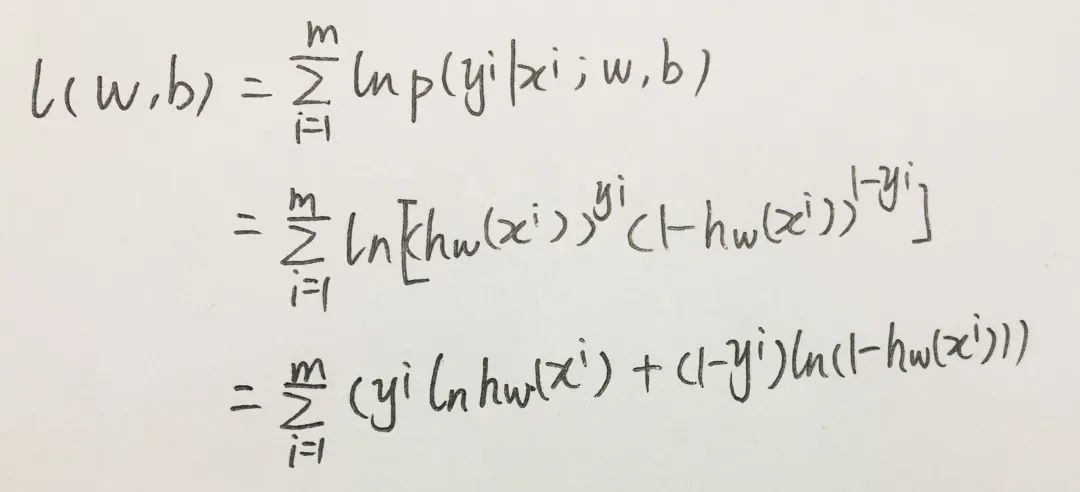 l(w,b) = \sum_{i=1}^{m} ln p(y^i|x^i; w,b)
= \sum_{i=1}^{m} ln[(h_w(x^i))^{y^i}(1-h_w(x^i))^{1-y^i}]
= \sum_{i=1}^{m} (y^i ln h_w(x^i) + (1-y^i)ln(1-h_w(x^i)))